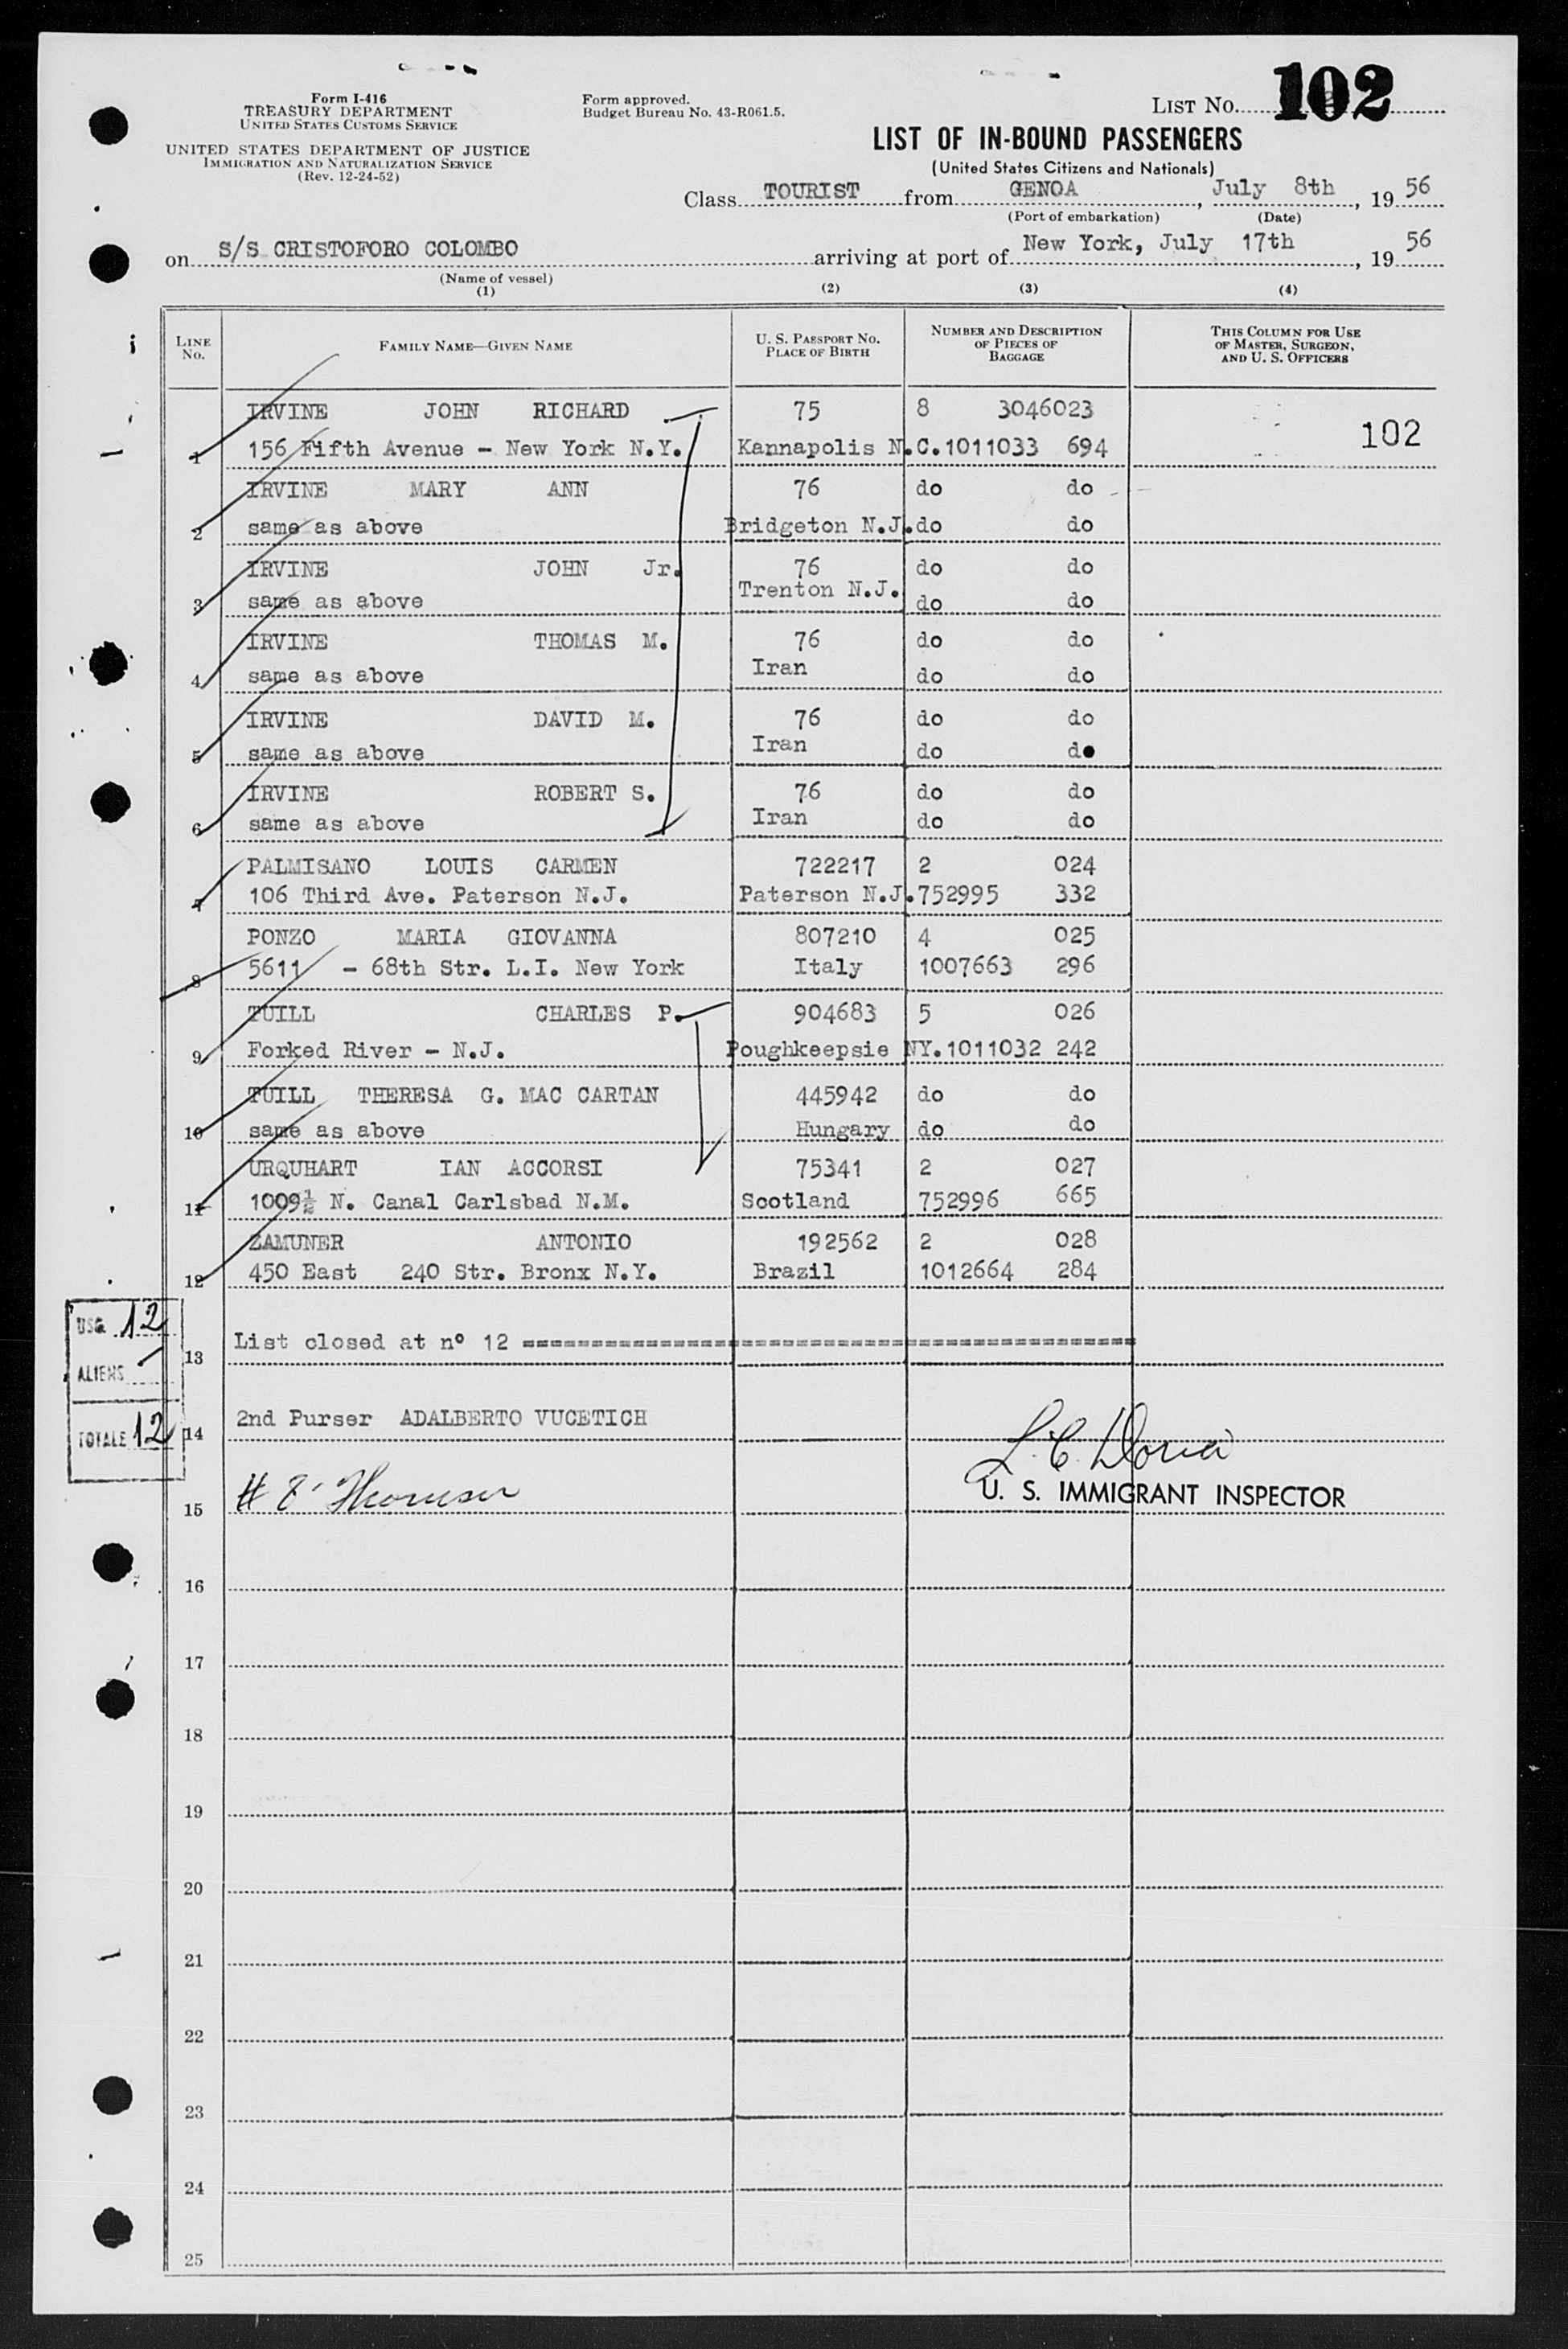 Form I-416
TREASURY DEPARTMENT
UNITED STATES CUSTOMS SERVICE
UNITED STATES DEPARTMENT OF JUSTICE
IMMIGRATION AND NATURALIZATION SERVICE
(Rev. 12-24-52)
Form approved.
Budget Bureau No. 43-R061.5.
LIST NO. 102
LIST OF IN-BOUND PASSENGERS
(United States Citizens and Nationals)
Class TOURIST from GENOA, July 8th, 19 56
(Port of embarkation) (Date)
on S/S CRISTOFORO COLOMBO arriving at port of New York, July 17th, 19 56
(Name of vessel)
(1) (2) (3) (4)
LINE NO. FAMILY NAME—GIVEN NAME U. S. PASSPORT NO. PLACE OF BIRTH NUMBER AND DESCRIPTION OF PIECES OF BAGGAGE THIS COLUMN FOR USE OF MASTER, SURGEON, AND U. S. OFFICERS
IRVINE JOHN RICHARD 75 8 3046023 102
1 156 Fifth Avenue - New York N.Y. Kannapolis N.C. 1011033 694
IRVINE MARY ANN 76 do do
2 same as above Bridgeton N.J. do do
IRVINE JOHN Jr. 76 do do
3 same as above Trenton N.J. do do
IRVINE THOMAS M. 76 do do
4 same as above Iran do do
IRVINE DAVID M. 76 do do
5 same as above Iran do do
IRVINE ROBERT S. 76 do do
6 same as above Iran do do
PALMISANO LOUIS CARMEN 722217 2 024
7 106 Third Ave. Paterson N.J. Paterson N.J. 752995 332
PONZO MARIA GIOVANNA 807210 4 025
8 5611 - 68th Str. L.I. New York Italy 1007663 296
TUILL CHARLES P. 904683 5 026
9 Forked River - N.J. Poughkeepsie NY. 1011032 242
TUILL THERESA G. MAC CARTAN 445942 do do
10 same as above Hungary do do
URQUHART IAN ACCORSI 75341 2 027
11 1009½ N. Canal Carlsbad N.M. Scotland 752996 665
ZAMUNER ANTONIO 192562 2 028
12 450 East 240 Str. Bronx N.Y. Brazil 1012664 284
USC 12
13 List closed at nº 12 ============================================
ALIENS —
14 2nd Purser ADALBERTO VUCETICH
TOTALE 12
U. S. IMMIGRANT INSPECTOR
15
16
17
18
19
20
21
22
23
24
25